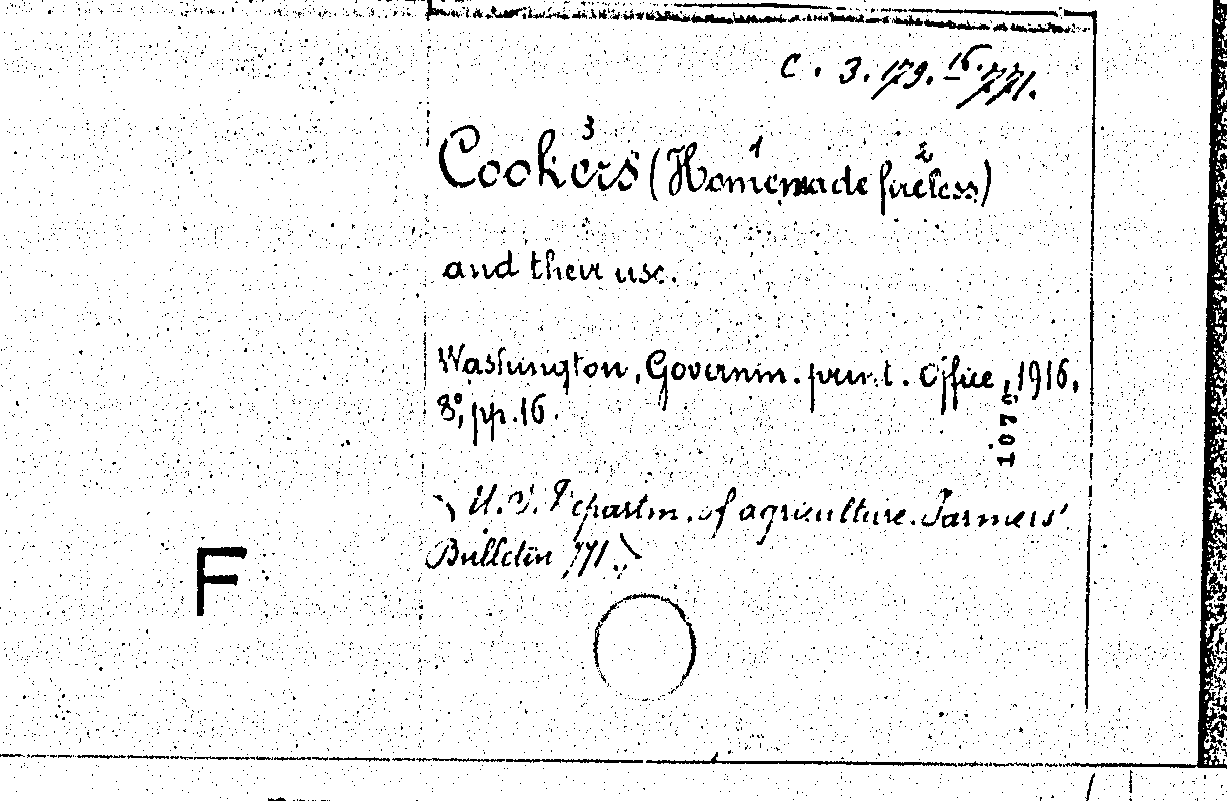 C. 3. 179. 16. 771.
3 1 2
Cookers (Homemade fireless)
and their use.
Washington, Governm. print. Office, 1916,
8°, pp. 16.
(U.S. Departm. of agriculture. Farmers'
Bulletin 771.)
F